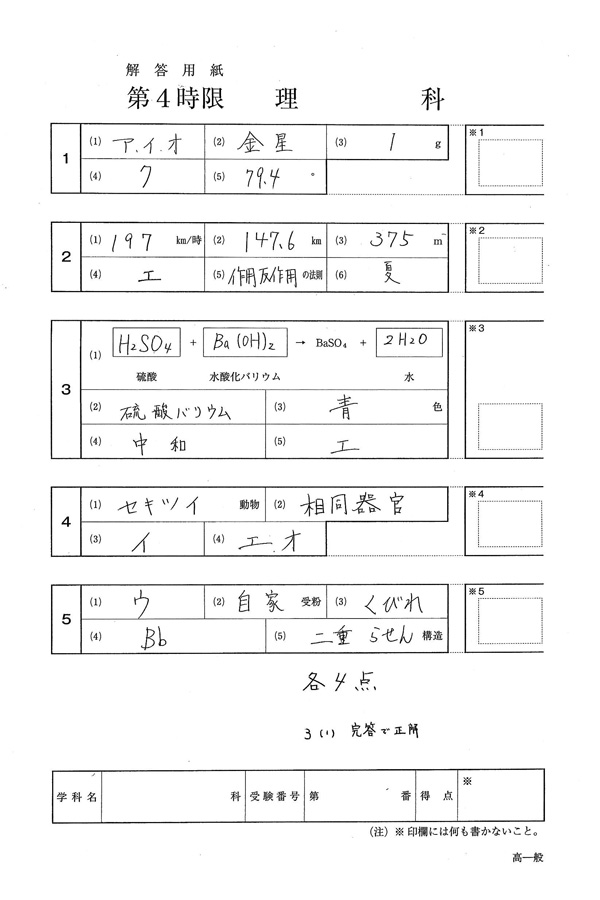 解答用紙
第4時限 理 科
1 (1) ア.イ.オ (2) 金星 (3) 1 g ※1
(4) ク (5) 79.4 °
2 (1) 197 km/時 (2) 147.6 km (3) 375 m ※2
(4) エ (5) 作用反作用 の法則 (6) 夏
3 (1) H₂SO₄ + Ba(OH)₂ → BaSO₄ + 2H₂O ※3
硫酸 水酸化バリウム 水
(2) 硫酸バリウム (3) 青 色
(4) 中和 (5) エ
4 (1) セキツイ 動物 (2) 相同器官 ※4
(3) イ (4) エ.オ
5 (1) ウ (2) 自家 受粉 (3) くびれ ※5
(4) Bb (5) 二重らせん 構造
各4点
3(1) 完答で正解
学科名 科 受験番号 第 番 得点 ※
(注) ※印欄には何も書かないこと。
高一般